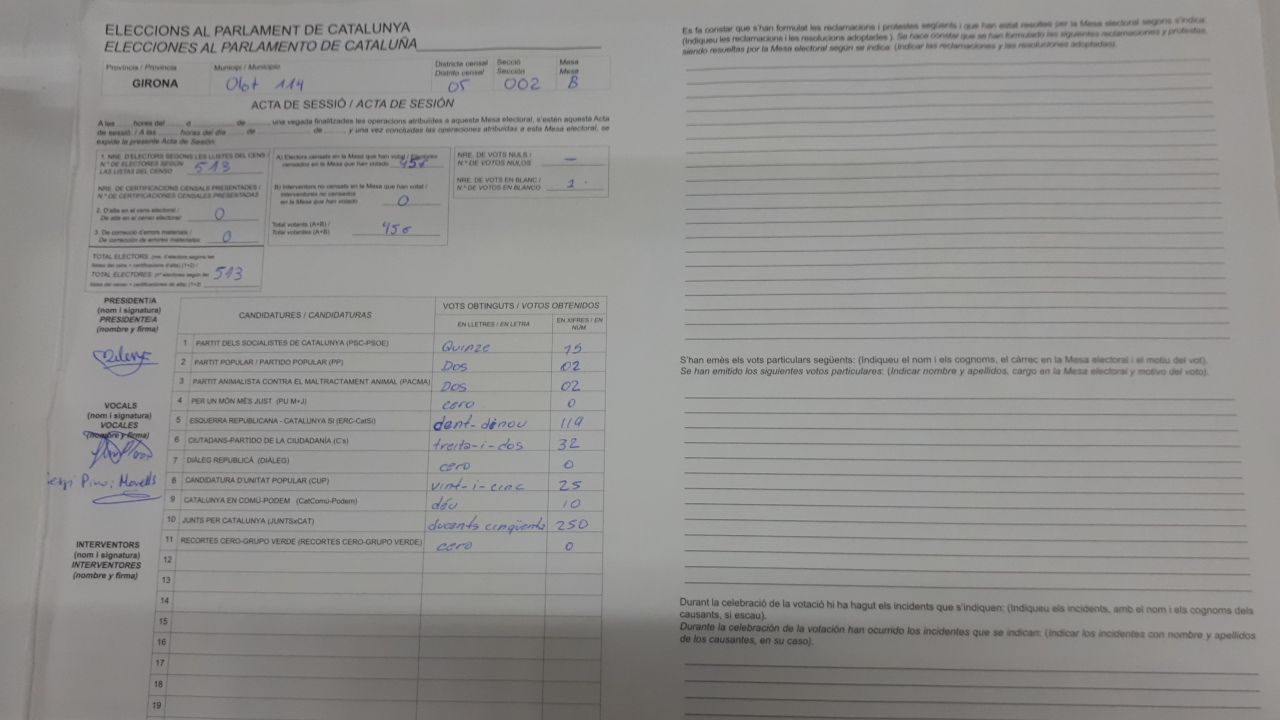 ELECCIONS AL PARLAMENT DE CATALUNYA
ELECCIONES AL PARLAMENTO DE CATALUÑA
Província / Provincia Municipi / Municipio Districte censal Secció Mesa
Distrito censal Sección Mesa
GIRONA Olot 114 05 002 B
ACTA DE SESSIÓ / ACTA DE SESIÓN
A les ...... hores del ...... d ...... de ...... una vegada finalitzades les operacions atribuïdes a aquesta Mesa electoral, s'estén aquesta Acta
de sessió. / A las ...... horas del día ...... de ...... de ...... y una vez concluidas las operaciones atribuidas a esta Mesa electoral, se
expide la presente Acta de Sesión.
1. NRE. D'ELECTORS SEGONS LES LLISTES DEL CENS /
N.º DE ELECTORES SEGÚN 513
LAS LISTAS DEL CENSO
NRE. DE CERTIFICACIONS CENSALS PRESENTADES /
N.º DE CERTIFICACIONES CENSALES PRESENTADAS
2. D'alta en el cens electoral / 0
De alta en el censo electoral:
3. De correcció d'errors materials / 0
De corrección de errores materiales:
TOTAL ELECTORS: (nre. d'electors segons les
llistes del cens + certificacions d'alta) (1+2) /
TOTAL ELECTORES: (nº electores según las 513
listas del censo + certificaciones de alta) (1+2)
A) Electors censats en la Mesa que han votat / Electores
censados en la Mesa que han votado 456
B) Interventors no censats en la Mesa que han votat /
Interventores no censados
en la Mesa que han votado 0
Total votants (A+B) /
Total votantes (A+B) 456
NRE. DE VOTS NULS /
N.º DE VOTOS NULOS —
NRE. DE VOTS EN BLANC /
N.º DE VOTOS EN BLANCO 1
PRESIDENT/A
(nom i signatura)
PRESIDENTE/A
(nombre y firma)
VOCALS
(nom i signatura)
VOCALES
(nombre y firma)
INTERVENTORS
(nom i signatura)
INTERVENTORES
(nombre y firma)
CANDIDATURES / CANDIDATURAS VOTS OBTINGUTS / VOTOS OBTENIDOS
EN LLETRES / EN LETRA EN XIFRES / EN NÚM
1 PARTIT DELS SOCIALISTES DE CATALUNYA (PSC-PSOE) Quinze 15
2 PARTIT POPULAR / PARTIDO POPULAR (PP) Dos 02
3 PARTIT ANIMALISTA CONTRA EL MALTRACTAMENT ANIMAL (PACMA) Dos 02
4 PER UN MÓN MÉS JUST (PU M+J) cero 0
5 ESQUERRA REPUBLICANA - CATALUNYA SÍ (ERC-CatSí) 119
6 CIUTADANS-PARTIDO DE LA CIUDADANÍA (C's) treita-i-dos 32
7 DIÀLEG REPUBLICÀ (DIÀLEG) cero 0
8 CANDIDATURA D'UNITAT POPULAR (CUP) vint-i-cinc 25
9 CATALUNYA EN COMÚ-PODEM (CatComú-Podem) déu 10
10 JUNTS PER CATALUNYA (JUNTSxCAT) ducents cinqüenta 250
11 RECORTES CERO-GRUPO VERDE (RECORTES CERO-GRUPO VERDE) cero 0
12
13
14
15
16
17
18
19
Es fa constar que s'han formulat les reclamacions i protestes següents i que han estat resoltes per la Mesa electoral segons s'indica:
(Indiqueu les reclamacions i les resolucions adoptades ). Se hace constar que se han formulado las siguientes reclamaciones y protestas,
siendo resueltas por la Mesa electoral según se indica: (Indicar las reclamaciones y las resoluciones adoptadas).
S'han emès els vots particulars següents: (Indiqueu el nom i els cognoms, el càrrec en la Mesa electoral i el motiu del vot).
Se han emitido los siguientes votos particulares: (Indicar nombre y apellidos, cargo en la Mesa electoral y motivo del voto).
Durant la celebració de la votació hi ha hagut els incidents que s'indiquen: (Indiqueu els incidents, amb el nom i els cognoms dels
causants, si escau).
Durante la celebración de la votación han ocurrido los incidentes que se indican: (Indicar los incidentes con nombre y apellidos
de los causantes, en su caso).